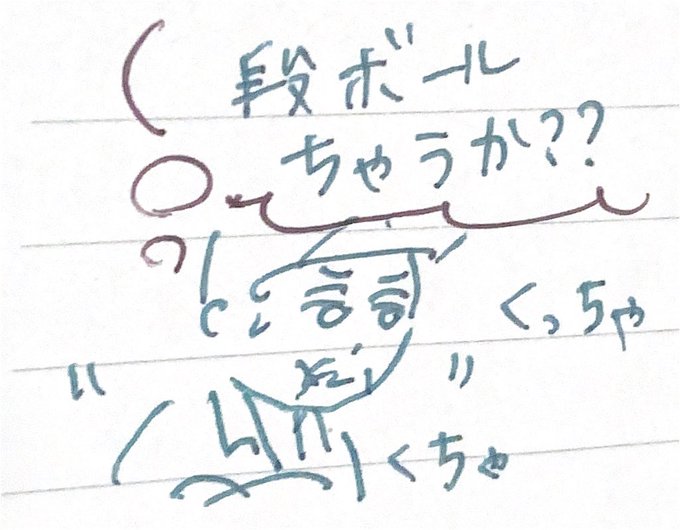 段ボール
ちゃうか??
くっちゃ
くちゃ